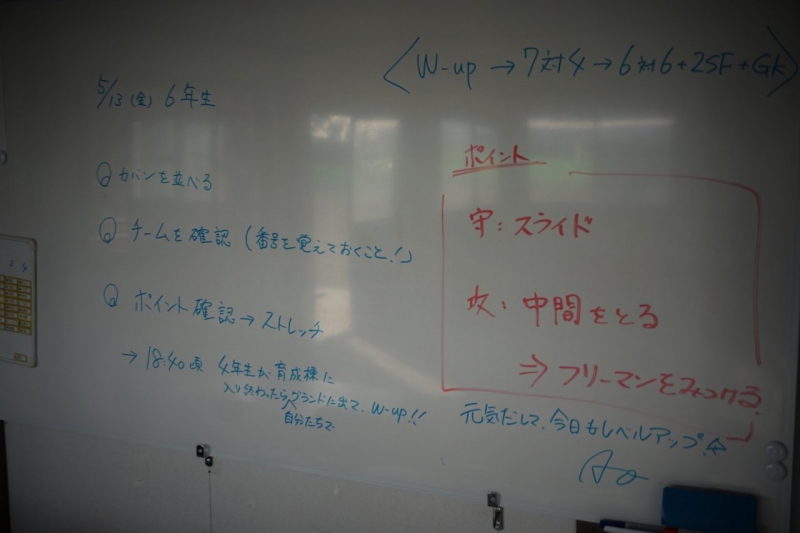 〈W-up → 7対4 → 6対6+2SF+GK〉
5/13(金) 6年生
カバンを並べる
チームを確認(番号を覚えておくこと!)
ポイント確認→ストレッチ
→ 18:40頃 4年生が育成棟に
入り終わったらグランドに出て、W-up!!
自分たちで
ポイント
守:スライド
攻:中間をとる
⇒フリーマンをみつける。
元気だして、今日もレベルアップ